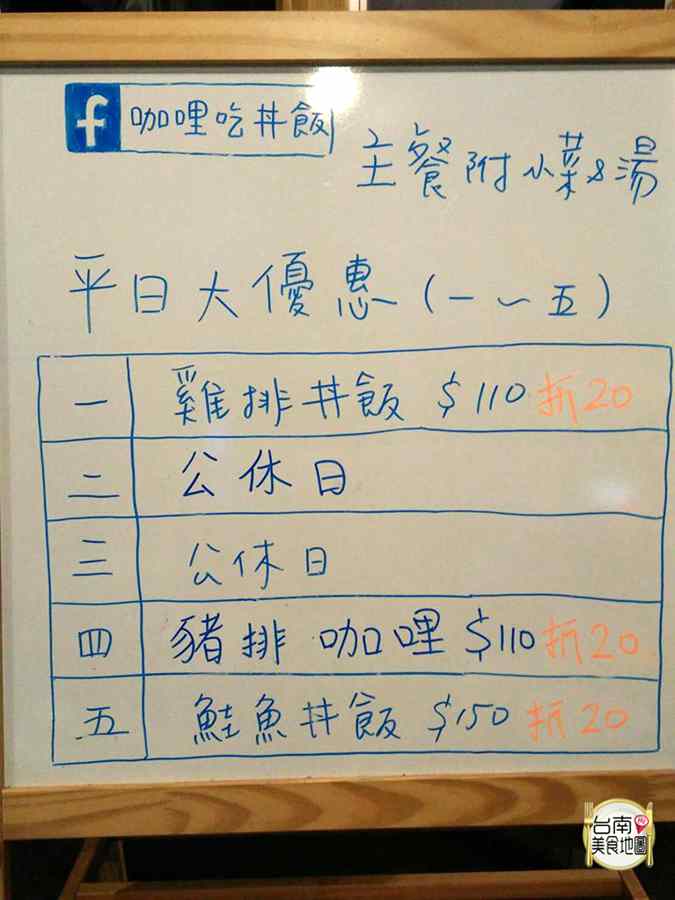 f 咖哩吃丼飯
主餐附小菜&湯
平日大優惠(一～五)
一 雞排丼飯 $110 折20
二 公休日
三 公休日
四 豬排 咖哩 $110 折20
五 鮭魚丼飯 $150 折20
台南
美食地圖